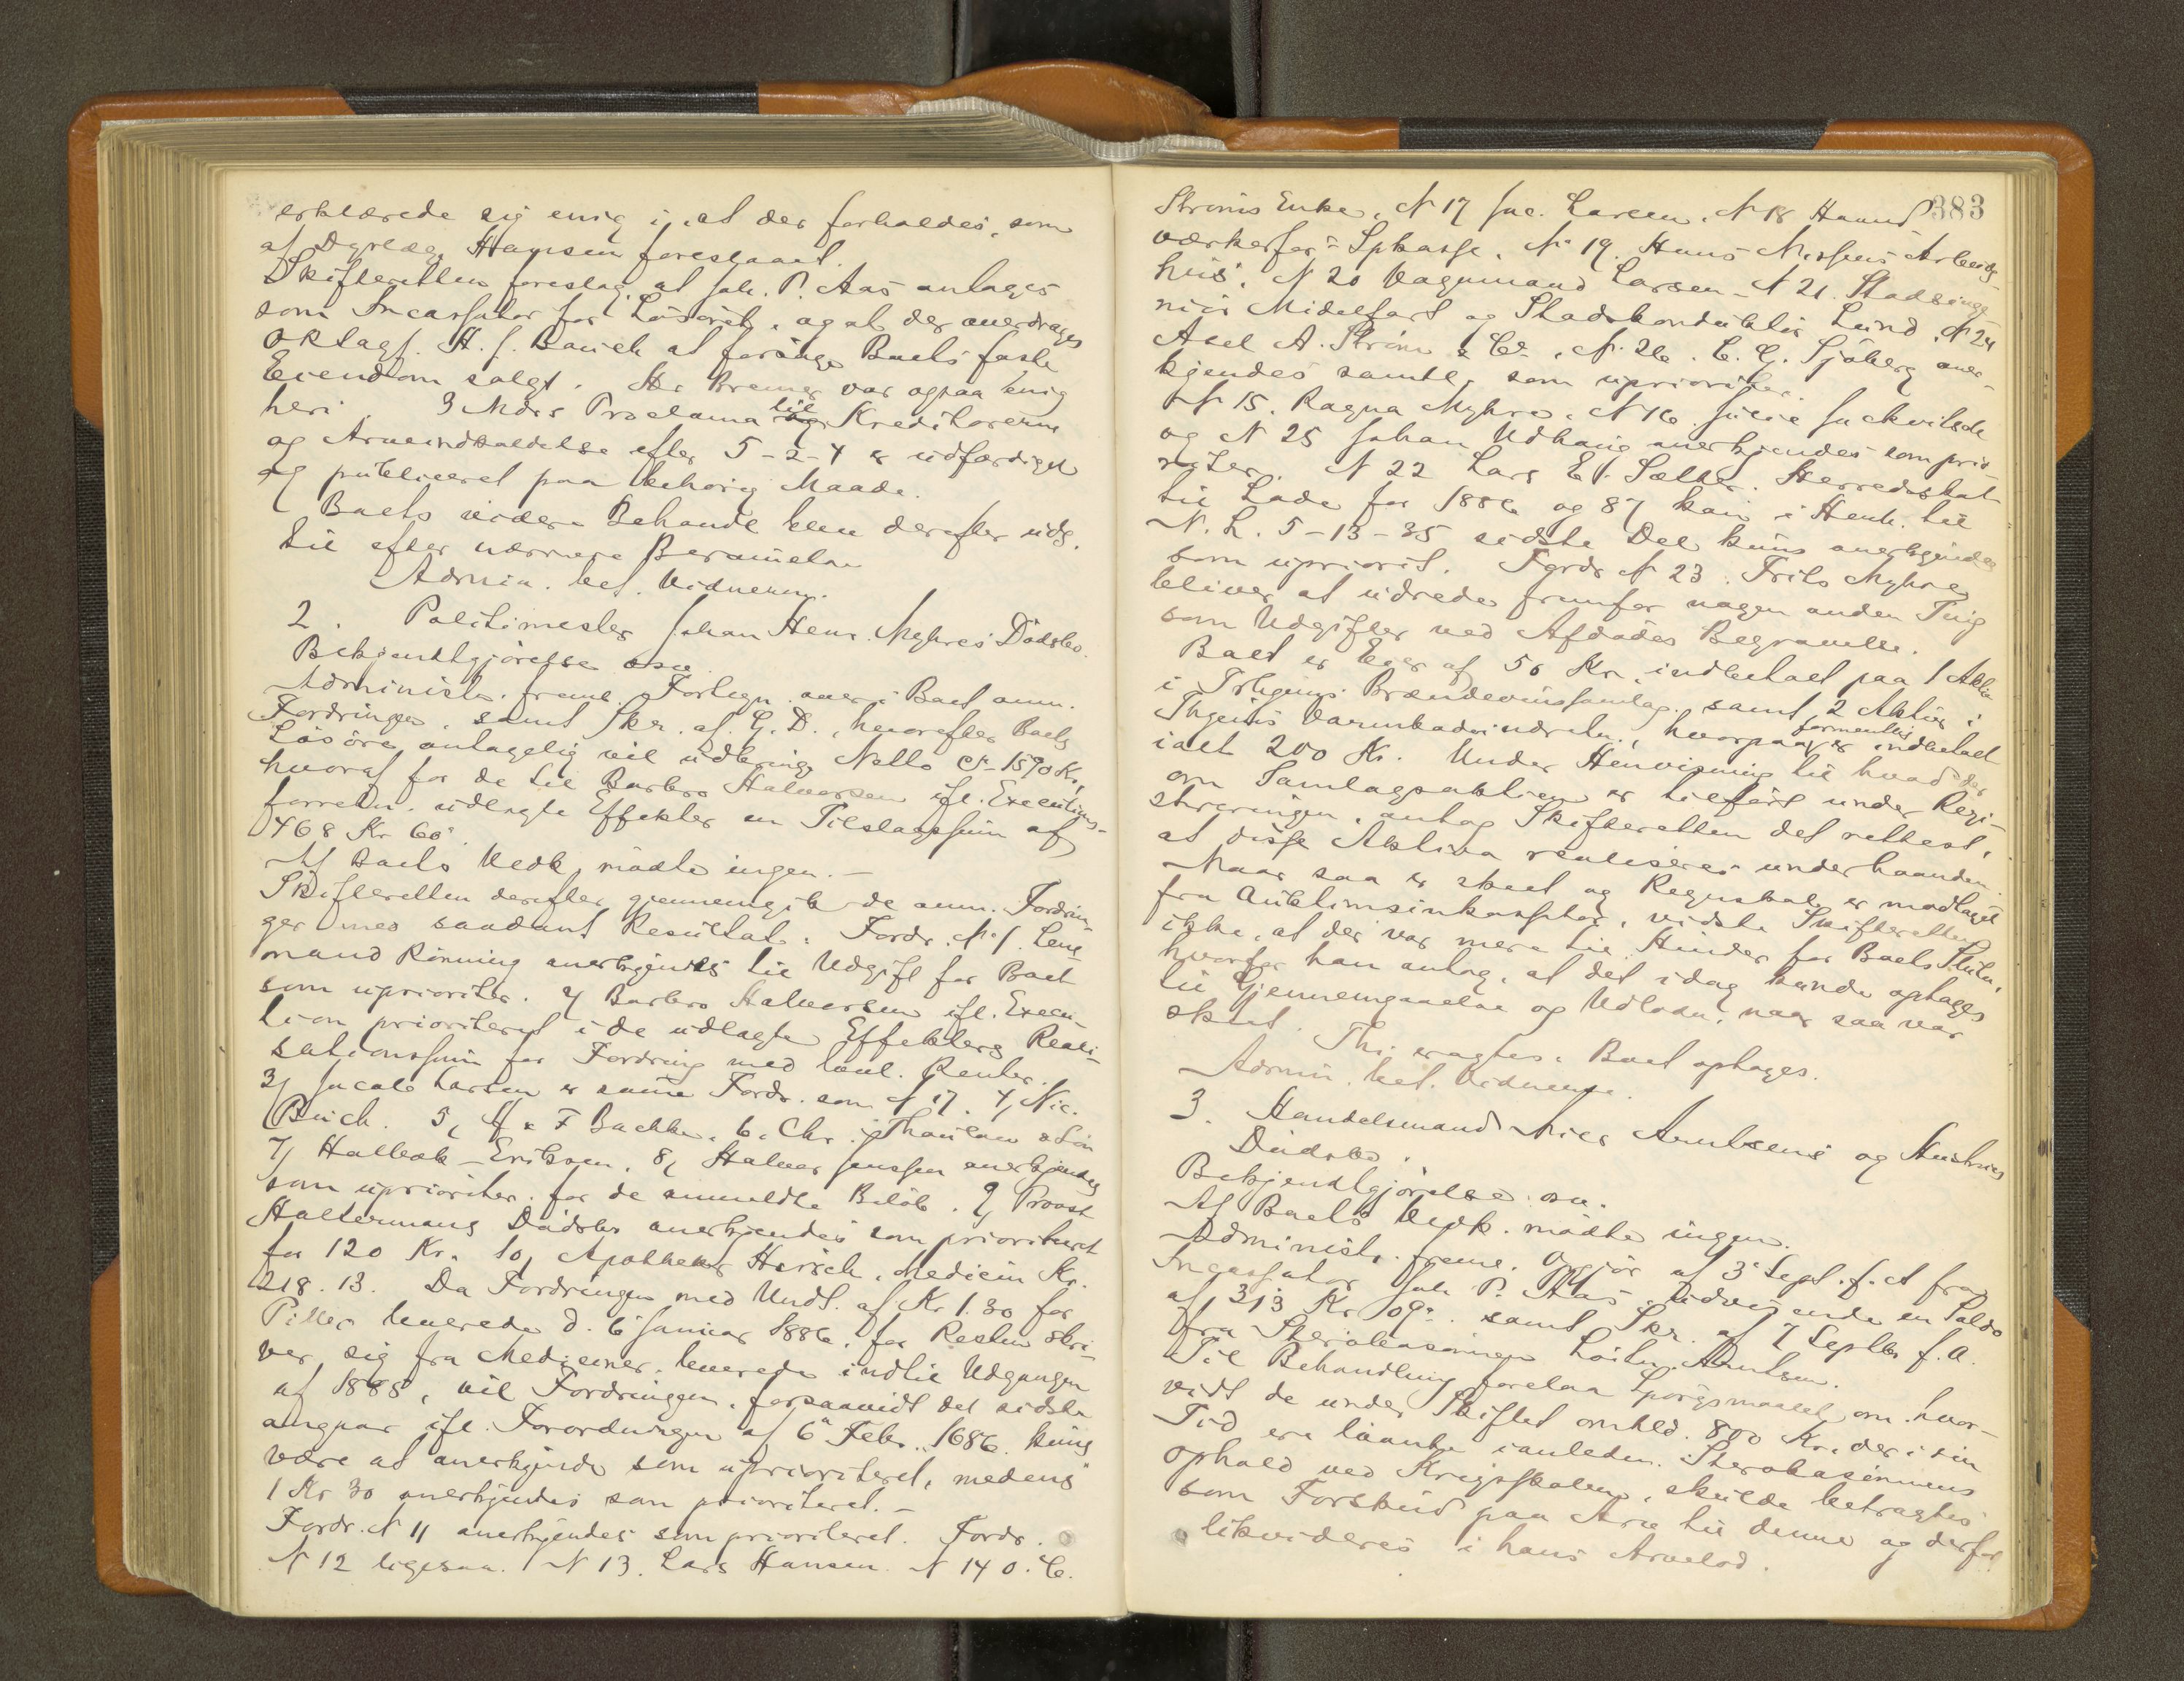 erklærede sig enig i, at der forholdes, som
af Dyrlæge Hansen foreslaaet.
Skifteretten foreslog, at Joh. P. Aas antages
som Incassator for Løsöret, og at der overdrages
O.R.sagf. H. J. Bauck at forsöge Boets faste
Eiendom solgt. Hr Bremer var ogsaa enig
heri. 3 Mdrs Proclama til Kreditorerne
og Arveindkaldelse efter 5-2-4 er udfærdiget
og publiceret paa behörig Maade.
Boets videre Behandl. blev derefter uds.
til efter nærmere Berammelse
Admin. bet. Vidnerne.
2. Politimester Johan Henr. Myhres Dödsbo.
Bekjendtgjörelse osv.
Administr. freml. Fortegn. over i Boet anm.
Fordringer, samt Skr. af G. D., hvorefter Boets
Lösöre antagelig vil udbringe Netto c. 1590 Kr,
hvoraf for de til Barbro Halvorsen ifl. Executions-
forretn. udlagte Effekter en Tilslagssum af
468 Kr 60.
Af Boets Vedk. mödte ingen.—
Skifteretten derefter gjennemgik de anm. Fordrin-
ger med saadant Resultat: Fordr. No 1. Lens-
mand Rönning anerkjendes til Udgift for Boet
som uprioriter. 2) Barbro Halvorsen ifl. Execu-
tion prioriteret i de udlagte Effekters Reali-
sationssum for Fordring med lovl. Renter.
3) Jacob Larsen er samme Fordr. som N 17. 4) Nic.
Buch. 5, H & F Bachke. 6. Chr. Thaulow & Sön
7) Halbak-Eriksen. 8) Halvor Jenssen anerkjendes
som uprioriter. for de anmeldte Beløb. 9) Provst
Haltermans Dödsbo anerkjendes som prioriteret
for 120 Kr. 10) Apotheker Hirsch. Medicin Kr.
218.13. Da Fordringen med Undt. af Kr 1.30 for
Piller leverede d. 6 Januar 1886, for Resten skri-
ver sig fra Mediciner, leverede indtil Udgangen
af 1885, vil Fordringen, forsaavidt det sidste
angaar ifl. Forordningen af 6 Febr. 1686 kuns
være at anerkjende som uprioriteret, medens
1 Kr 30 anerkjendes som prioriteret.—
Fordr. N 11 anerkjendes som prioriteret. Fordr.
N 12 ligesaa. N 13. Lars Hansen. N 14 O. C.
383
Ströms Enke. N 17 Jac. Larsen. N 18 Haand-
værkerfor: Spkasse. No 19. Hans Nissens Arbeids-
hus. N 20 Vognmand Larsen - N 21. Stadsinge-
niör Midelfart og Stadskonduktör Lund. N 24
Axel A. Ström & Co. N. 26. C. G. Sjöberg aner-
kjendes samtl. som uprioriter.
N 15. Ragna Myhre. N 16 
og N 25 Johan Udhaug anerkjendes som prio-
riter. N 22 Lars E. Sæther. Herredsskat
til Lade for 1886 og 87 kan i Henh. til
N. L. 5-13-35 sidste Del kuns anerkjendes
som upriorit. Fordr N 23. Frits Myhre
bliver at udrede fremfor nogen anden Ting
som Udgifter ved Afdödes Begravelse.
Boet er Eier af 50 Kr. indbetalt paa 1 Aktie
i Trhjems Brændevinssamlag, samt 2 Aktier i
Thjems Varmbadeindretn., hvorpaa formentlig er indbetalt
ialt 200 Kr. Under Henvisning til hvad der
om Samlagsaktien er tilfört under Regi-
streringen, antog Skifteretten det rettest,
at disse Aktiva realiseres underhaanden.
Naar saa er skeet og Regnskab er modtaget
fra Auktionsinkassator, vidste Skifteretten
ikke, at der var mere til Hinder for Boets Slutn.
hvorfor han antog, at det idag kunde optages
til Gjennemgaaelse og Udlodn. naar saa var
skeet.
Thi eragtes: Boet optages.
Admin. bet. Vidnerne.
3. Handelsmand Nils Arntsens og Hustrues
Dödsbo.
Bekjendtgjörelse osv.
Af Boets Vedk. mödte ingen.
Administr. freml. Opgjör af 3 Sept. f. A fra
Incassator Joh P. Aas udvisende en Saldo
af 313 Kr 09. samt Skr. af 7 Septbr f. A.
fra Arntsen.
Til Behandling forelaa Spörgsmaalet om hvor-
vidt de under Skiftet omhld. 800 Kr. der i sin
Tid ere laante i anledn. 
ophold ved Krigsskolen, skulde betragtes
som Forskud paa Arv til denne og derfor
likvideres i hans Arvelod.